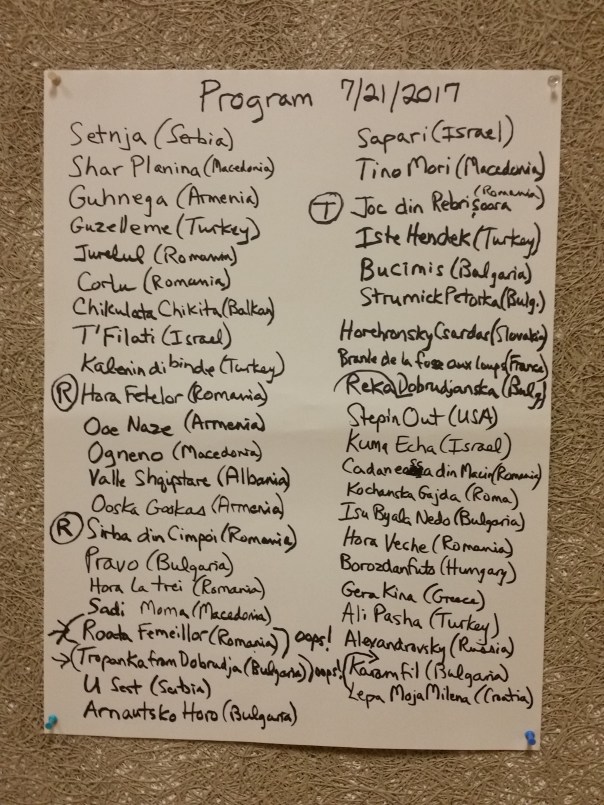 Program 7/21/2017
Setnja (Serbia)
Shar Planina (Macedonia)
Guhnega (Armenia)
Guzelleme (Turkey)
Jurelul (Romania)
Corlu (Romania)
Chikulata Chikita (Balkan)
T'Filati (Israel)
Kalenin dibinde (Turkey)
(R) Hora Fetelor (Romania)
Ooe Naze (Armenia)
Ogneno (Macedonia)
Valle Shqipstare (Albania)
Ooska Gaskas (Armenia)
(R) Sirba din Cimpoi (Romania)
Pravo (Bulgaria)
Hora La trei (Romania)
Sadi Moma (Macedonia)
Roata Femeillor (Romania)) oops!
(Tropanka from Dobrudja (Bulgaria)) oops!
U Sest (Serbia)
Arnautsko Horo (Bulgaria)
Sapari (Israel)
Tino Mori (Macedonia)
(T) Joc din Rebrişoara (Romania)
Iste Hendek (Turkey)
Bucimis (Balgaria)
Strumick Petorka (Bulg.)
Horehronsky Csardas (Slovakia)
Branle de la fosse aux loups (France)
Reka Dobrudjanska (Bulg)
Stepin Out (USA)
Kuma Echa (Israel)
din Macin (Romania)
Kochanska Gajda (Roma)
Isu Byala Nedo (Bulgaria)
Hora Veche (Romania)
Borozdanfuto (Hungary)
Gera Kina (Greece)
Ali Pasha (Turkey)
Alexandrovsky (Russia)
Karamfil (Bulgaria)
Lepa Moja Milena (Croatia)